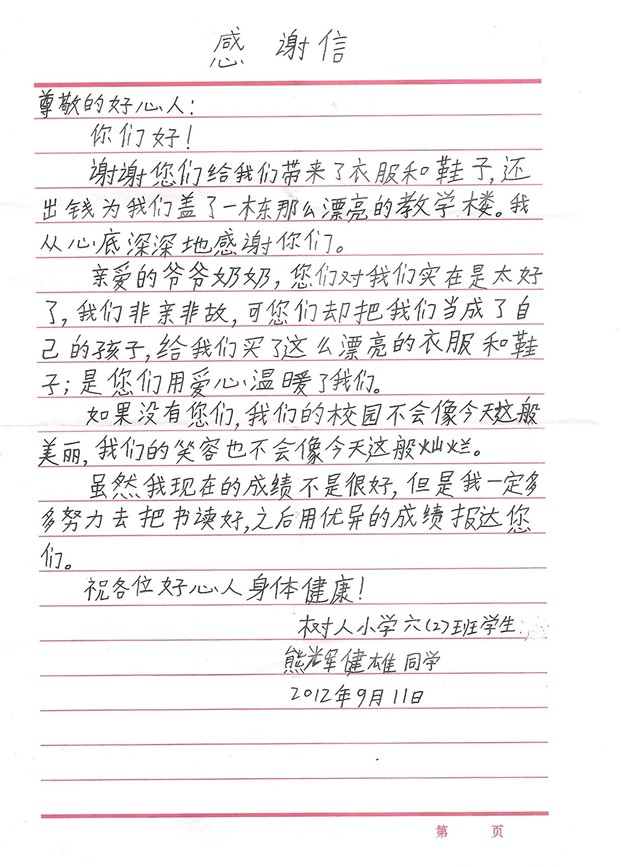 感谢信
尊敬的好心人:
你们好!
谢谢您们给我们带来了衣服和鞋子,还
出钱为我们盖了一栋那么漂亮的教学楼。我
从心底深深地感谢你们。
亲爱的爷爷奶奶,您们对我们实在是太好
了,我们非亲非故,可您们却把我们当成了自
己的孩子,给我们买了这么漂亮的衣服和鞋
子;是您们用爱心温暖了我们。
如果没有您们,我们的校园不会像今天这般
美丽,我们的笑容也不会像今天这般灿烂。
虽然我现在的成绩不是很好,但是我一定多
多努力去把书读好,之后用优异的成绩报达您
们。
祝各位好心人身体健康!
树人小学六(2)班学生
熊辉健雄同学
2012年9月11日
第 页